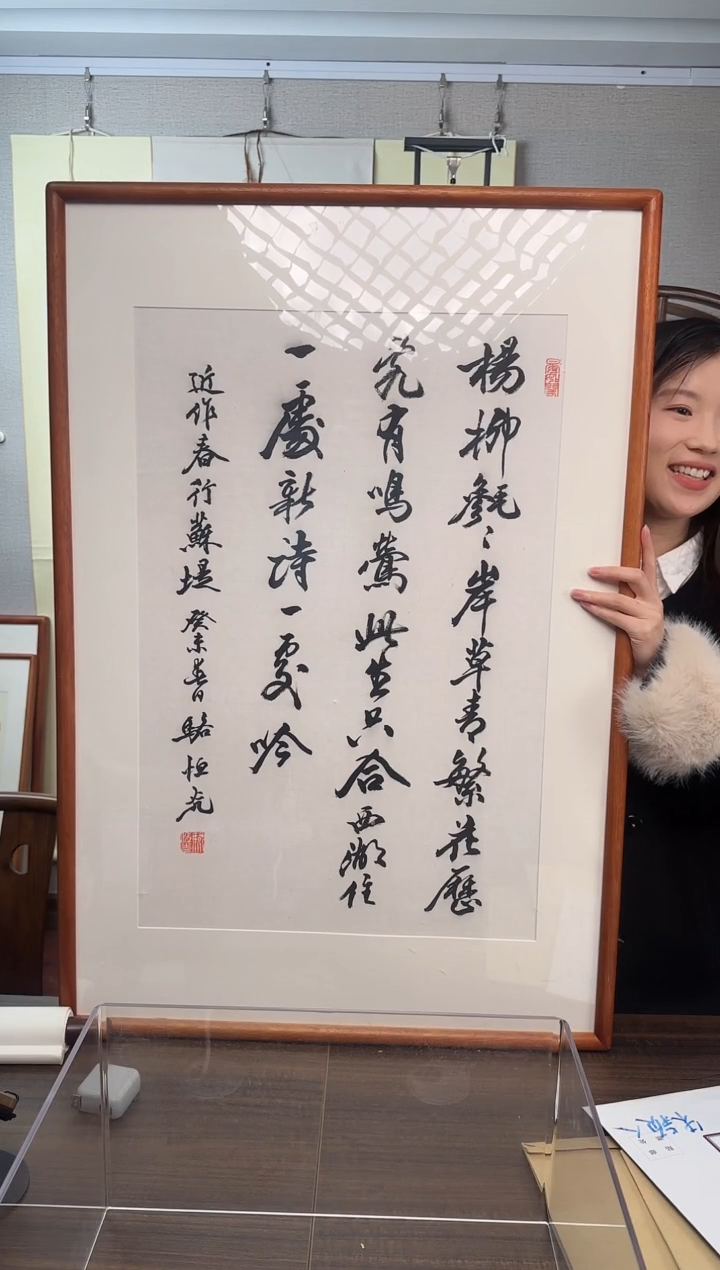 楊柳毿〻岸草青繁花歷
有鳴鶯此生只合西湖住
一處新詩一處吟
近作春行蘇堤 癸未春日 駱恒光
朱穎人